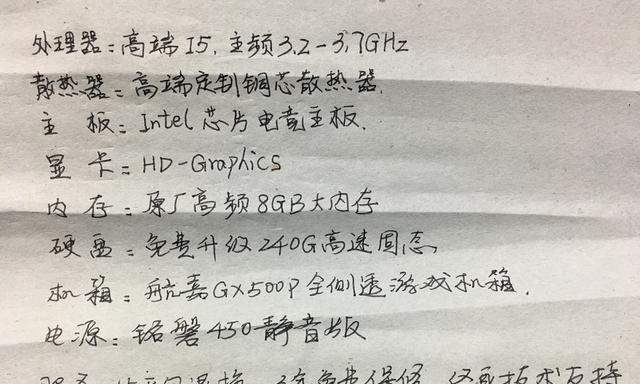 处理器：高端I5，主频3.2-3.7GHz
散热器：高端定制铜芯散热器.
主板：Intel芯片电竞主板.
显卡：HD-Graphics
内存：原厂高频8GB大内存
硬盘：免费升级240G高速固态
机箱：航嘉GX500P全侧透游戏机箱.
电源：铭磐450静音版